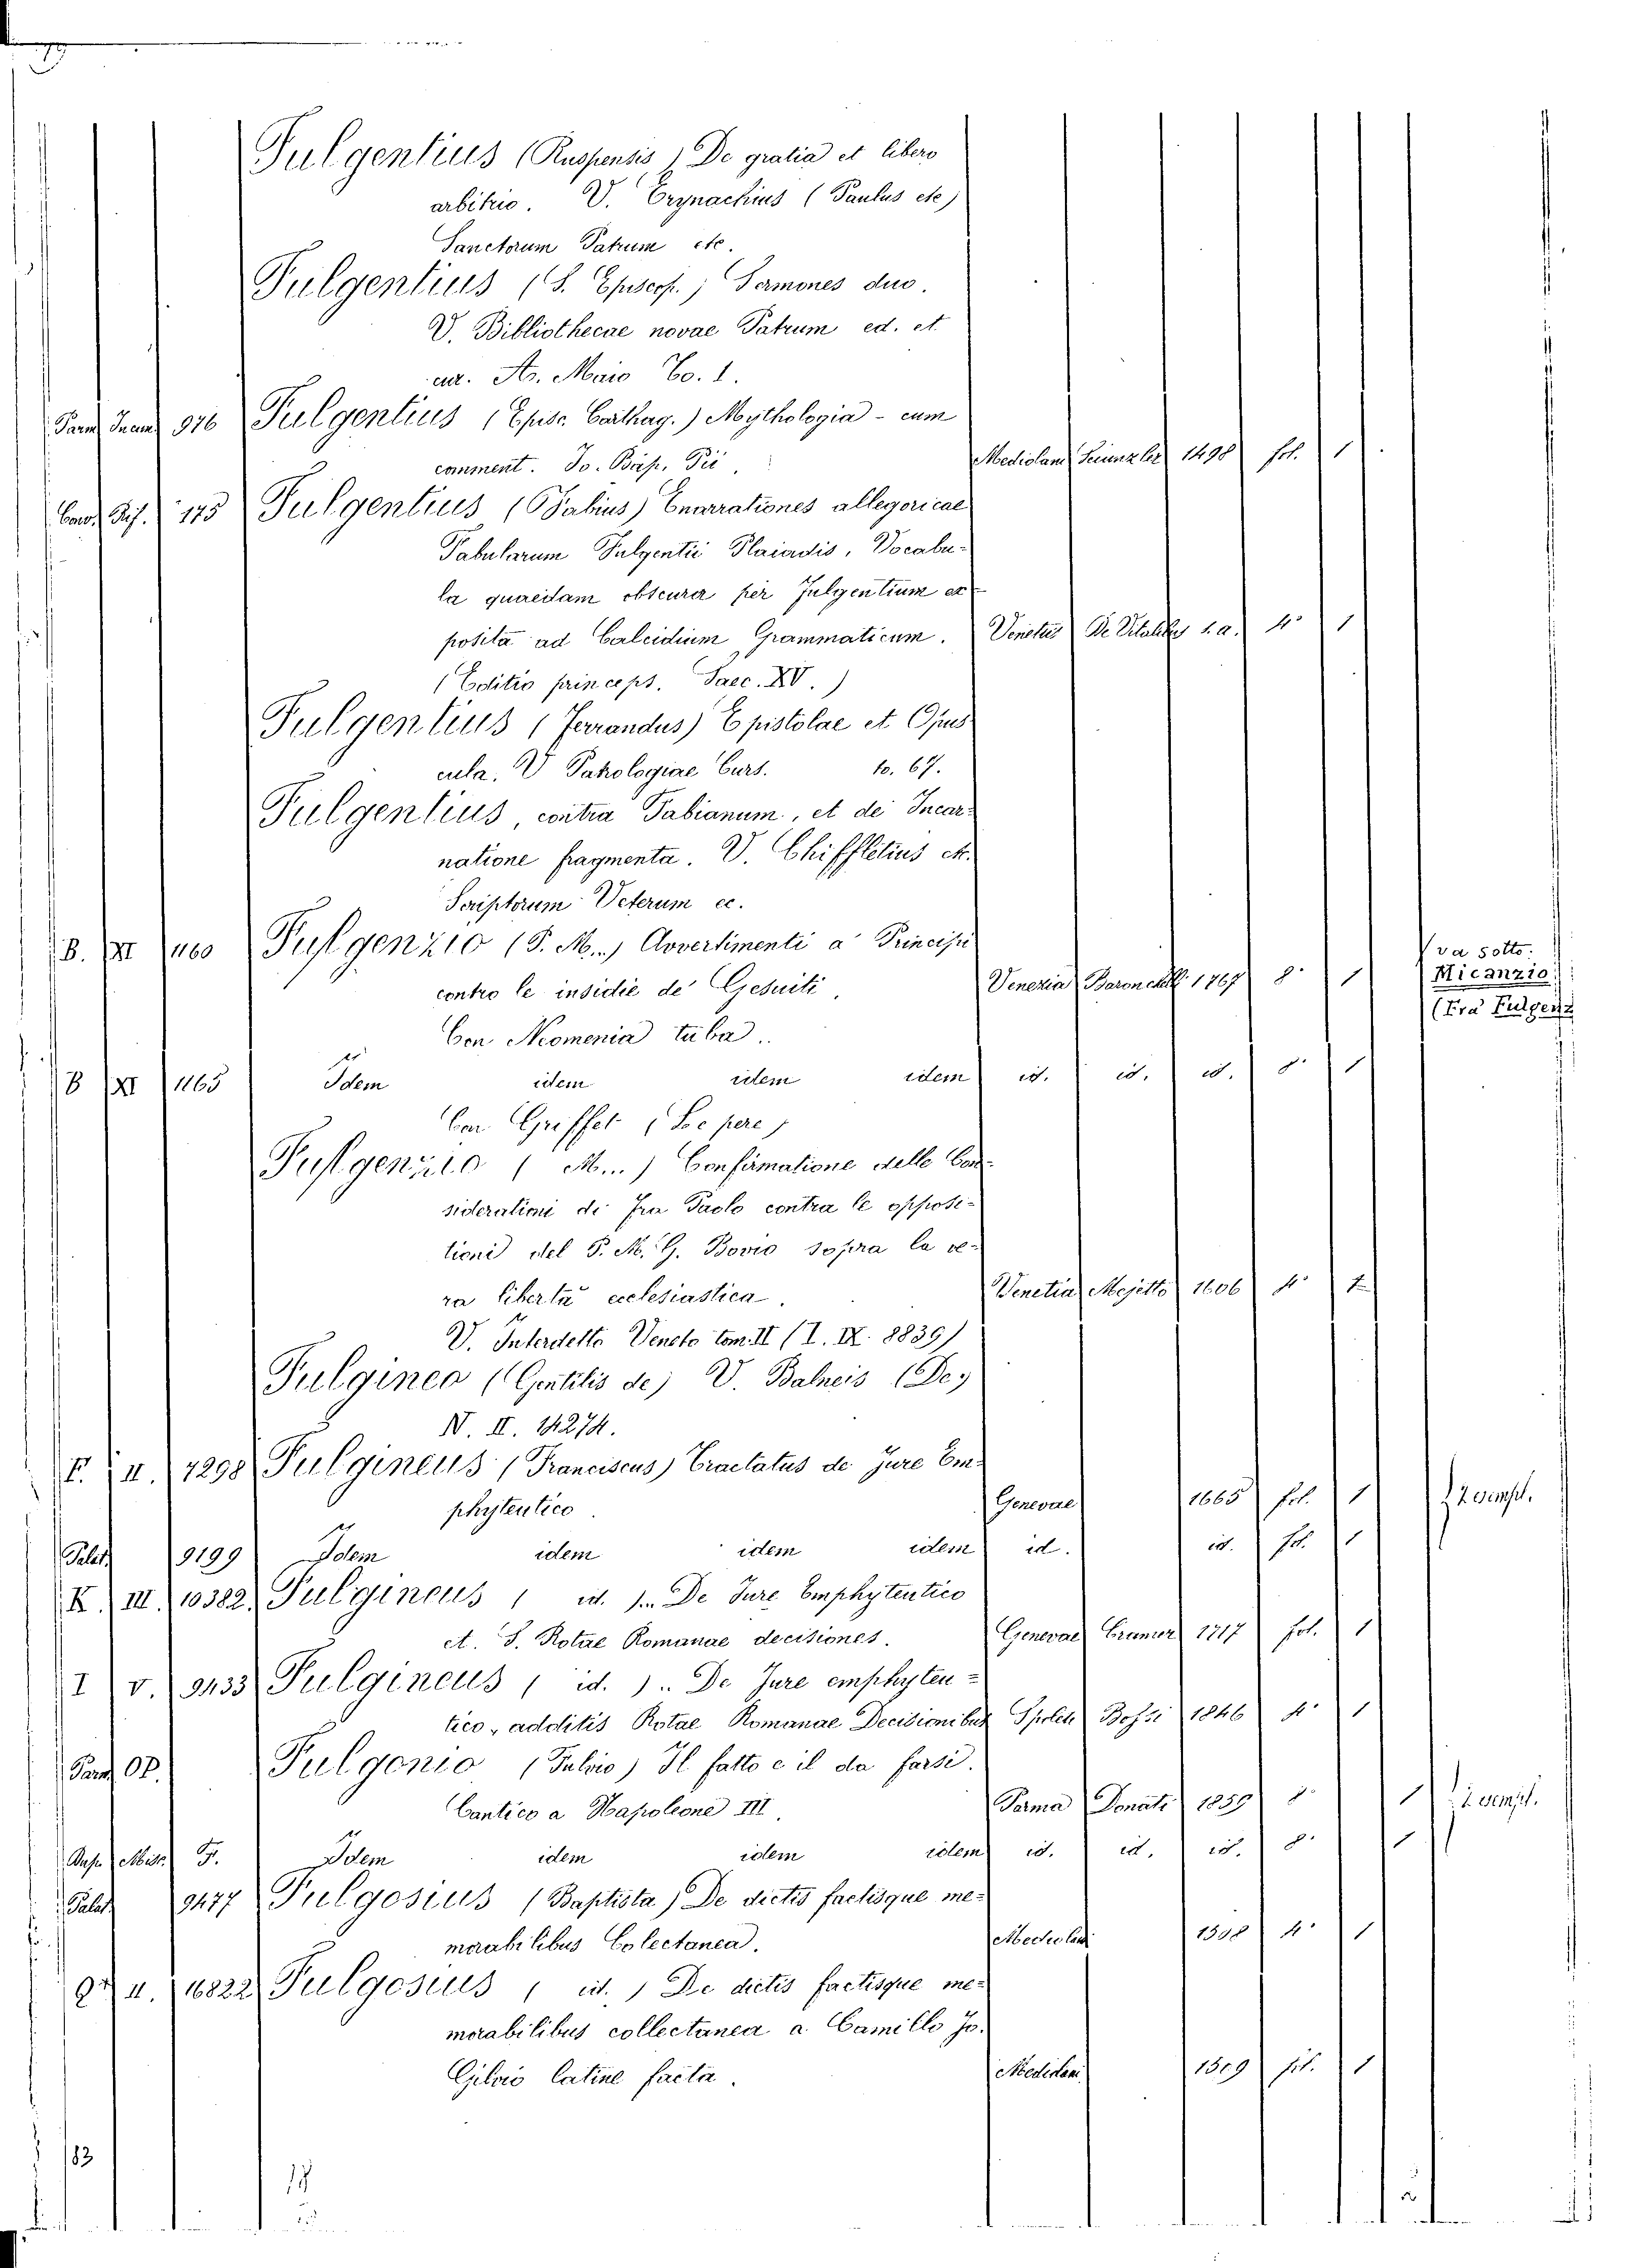 Fulgentius (Ruspensis) De gratia et libero
arbitrio. V. Erynachius (Paulus etc)
Sanctorum Patrum etc.
Fulgentius (S. Episcop.) Sermones duo.
V. Bibliothecae novae Patrum ed. et
cur. A. Maio To. 1.
976 Fulgentius (Episc. Carthag.) Mythologia - cum
comment. Jo. Bap. Pii. Mediolani Scinzeler 1498 fol. 1
175 Fulgentius (Fabius) Enarrationes allegoricae
Fabularum Fulgentii Placiadis, Vocabu-
la quaedam obscura per Fulgentium ex
posita ad Calcidium Grammaticum. Venetiis De Vitalibus s. a. 4° 1
(Editio princeps. Saec. XV.)
Fulgentius (Ferrandus) Epistolae et Opus
cula. V Patrologiae Curs. to. 67.
Fulgentius, contra Fabianum, et de Incar-
natione fragmenta. V. Chiffletius etc.
Scriptorum Veterum ec.
B. XI 1160 Fulgenzio (P. M..) Avvertimenti a' Principi
contro le insidie de' Gesuiti, Venezia Baronchelli 1767 8° 1 va sotto: Micanzio (Fra Fulgenz
Con Neomenia tuba..
B XI 1165 Idem idem idem idem id. id. id. 8° 1
Con Griffet (Le pere)
Fulgenzio (M...) Confirmatione delle Con-
siderationi di Fra Paolo contra le opposi-
tioni del P. M. G. Bovio sopra la ve-
ra libertà ecclesiastica. Venetia Mejetto 1606 4° 1
V. Interdetto Veneto tom. II (I. IX. 8839)
Fulginea (Gentilis de) V. Balneis (De)
N. II. 14274.
F. II. 7298 Fulgineus (Franciscus) Tractatus de Jure Em-
phyteutico. Genevae 1665 fol. 1 2 esempl.
Palat. 9199 Idem idem idem idem id. id. fol. 1
K. III. 10382. Fulgineus ( id. ).. De Jure Emphyteutico
et. S. Rotae Romanae decisiones. Genevae Cramer 1717 fol. 1
I V. 9433 Fulgineus ( id. ).. De Jure emphyteu=
tico, additis Rotae Romanae Decisionibus Spoleti Bossi 1846 4° 1
OP. Fulgonio (Fulvio) Il fatto e il da farsi.
Cantico a Napoleone III. Parma Donati 1859 8° 1 2. esempl.
F. Idem idem idem idem id. id. id. 8° 1
Palat. 9477 Fulgosius (Baptista) De dictis factisque me-
morabilibus Colectanea. Mediolani 1508 4° 1
II. 16822 Fulgosius ( id. ) De dictis factisque me-
morabilibus collectanea a Camillo Jo.
Gilvio latine facta. Mediolani 1509 fol. 1
183